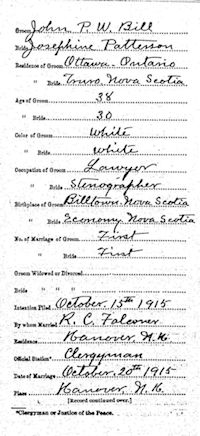 Groom John P. W. Bill
Bride Josephine Patterson
Residence of Groom Ottawa - Ontario
" Bride Truro Nova Scotia
Age of Groom 38
" Bride 30
Color of Groom White
" Bride White
Occupation of Groom Lawyer
" Bride Stenographer
Birthplace of Groom Billtown Nova Scotia
" Bride Economy Nova Scotia
No. of Marriage of Groom First
" Bride First
Groom Widowed or Divorced
Bride " " "
Intention Filed October 15th 1915
By whom Married R. C. Falconer
Residence Hanover, N.H.
Official Station* Clergyman
Date of Marriage October 20th 1915
Place Hanover, N.H.
[Record continued over.]
*Clergyman or Justice of the Peace.